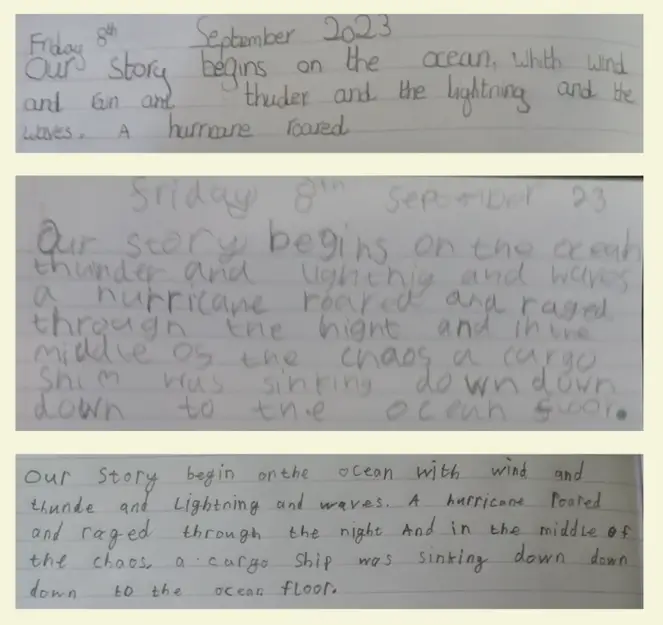 Friday 8th September 2023
Our story begins on the ocean, whith wind
and and thuder and the lightning and the
waves. A hurricane roared
Friday 8th September 23
Our story begins on the ocean
thunder and and waves
a hurricane roared and raged
through the night and in the
middle os the chaos a cargo
was sinking down down
down to the ocean
Our Story begin on the ocean with wind and
thunde and Lightning and waves. A hurricane roared
and raged through the night And in the middle of
the chaos, a cargo Ship was sinking down down
down to the ocean floor.